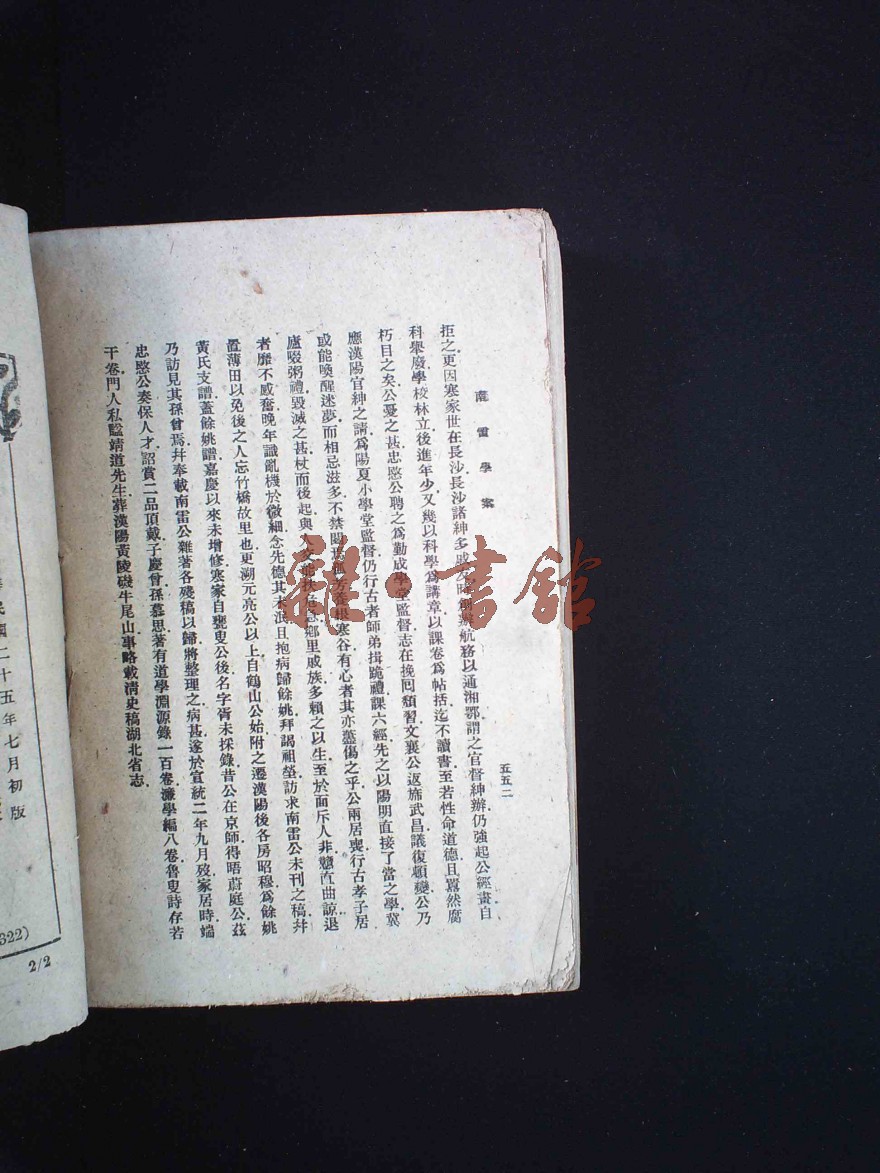 南雷學案
五五二
拒之更因寒家世在長沙長沙諸紳多戚友時創辦航務以通湘鄂謂之官督紳辦仍強起公經畫自
科舉廢學校林立後進年少又幾以科學為講章以課卷為帖括迄不讀書至若性命道德且囂然腐
朽目之矣公憂之甚忠愍公聘之為勤成學堂監督志在挽回頹習文襄公返旆武昌議復頓變公乃
應漢陽官紳之請為陽夏小學堂監督仍行古者師弟揖跪禮課六經先之以陽明直接了當之學冀
或能喚醒迷夢而相忌滋多不禁閒芳養根寒谷有心者其亦藎傷之乎公兩居喪行古孝子居
廬歠粥禮毀滅之甚杖而後起與人鄉里戚族多賴之以生至於面斥人非戇直曲諒退
者靡不感奮晚年識亂機於微細念先德其未泯且抱病歸餘姚拜謁祖塋訪求南雷公未刊之稿幷
置薄田以免後之人忘竹橋故里也更溯元亮公以上自鶴山公始附之遷漢陽後各房昭穆為餘姚
黃氏支譜蓋餘姚譜嘉慶以來未增修寒家自甕叟公後名字胥未採錄昔公在京師得晤蔚庭公茲
乃訪見其孫曾焉幷奉載南雷公雜著各殘稿以歸將整理之病甚遂於宣統二年九月歿家居時端
忠愍公奏保人才詔賞二品頂戴子慶曾孫慕思著有道學淵源錄一百卷濂學編八卷魯叟詩存若
干卷門人私諡靖道先生葬漢陽黃陵磯牛尾山事略載清史稿湖北省志
民國二十五年七月初版
322)
2/2
雜·書館